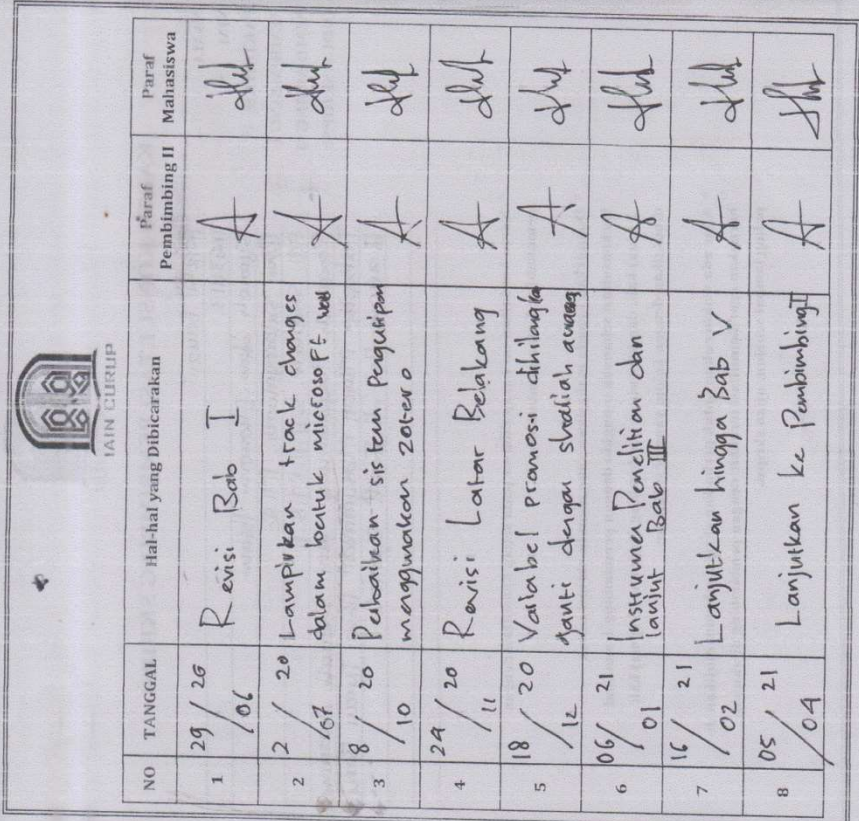 IAIN CURUP
NO TANGGAL Hal-hal yang Dibicarakan Paraf Pembimbing II Paraf Mahasiswa
1 29/06 20 Revisi Bab I
2 2/07 20 Lampirkan track changes
dalam bentuk microsoft
3 8/10 20 Perbaikan sistem Pengutipan
menggunakan zotero
4 24/11 20 Revisi Latar Belakang
5 18/12 20 Variabel promosi dihilangkan
ganti dengan
6 06/01 21 Instrumen Penelitian dan
lanjut Bab III
7 16/02 21 Lanjutkan hingga Bab V
8 05/04 21 Lanjutkan ke Pembimbing II